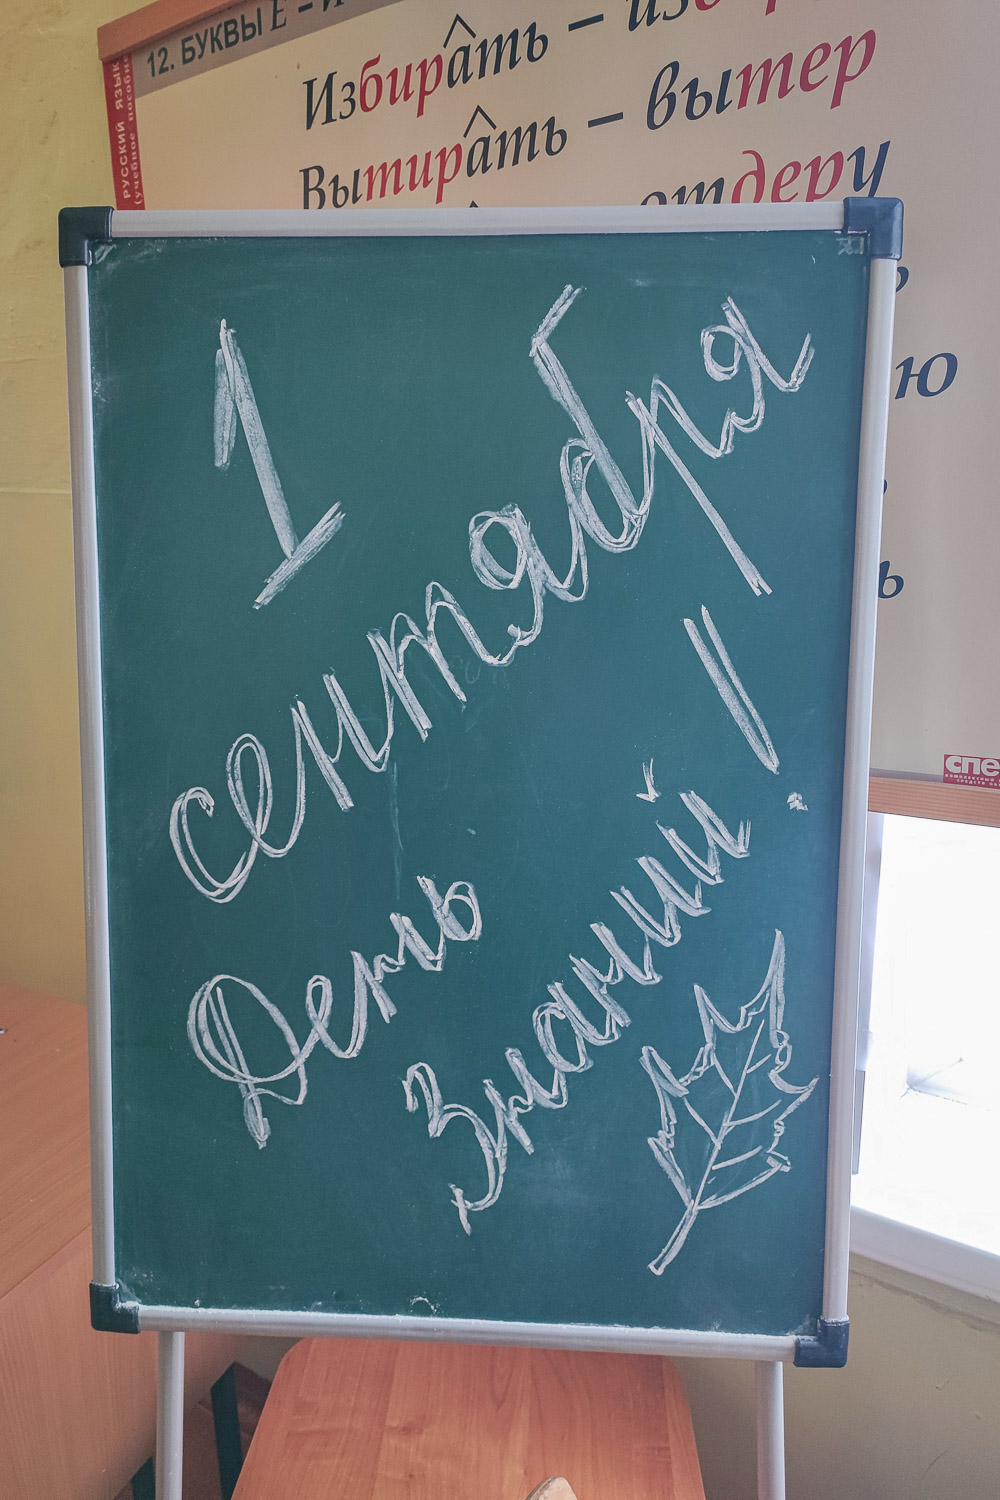 12. БУКВЫ Е – И
РУССКИЙ ЯЗЫК
(учебное пособие
Избирать – изб
Вытирать – вытер
отдеру
ю
ь
1
сентября
День
Знаний!
спе